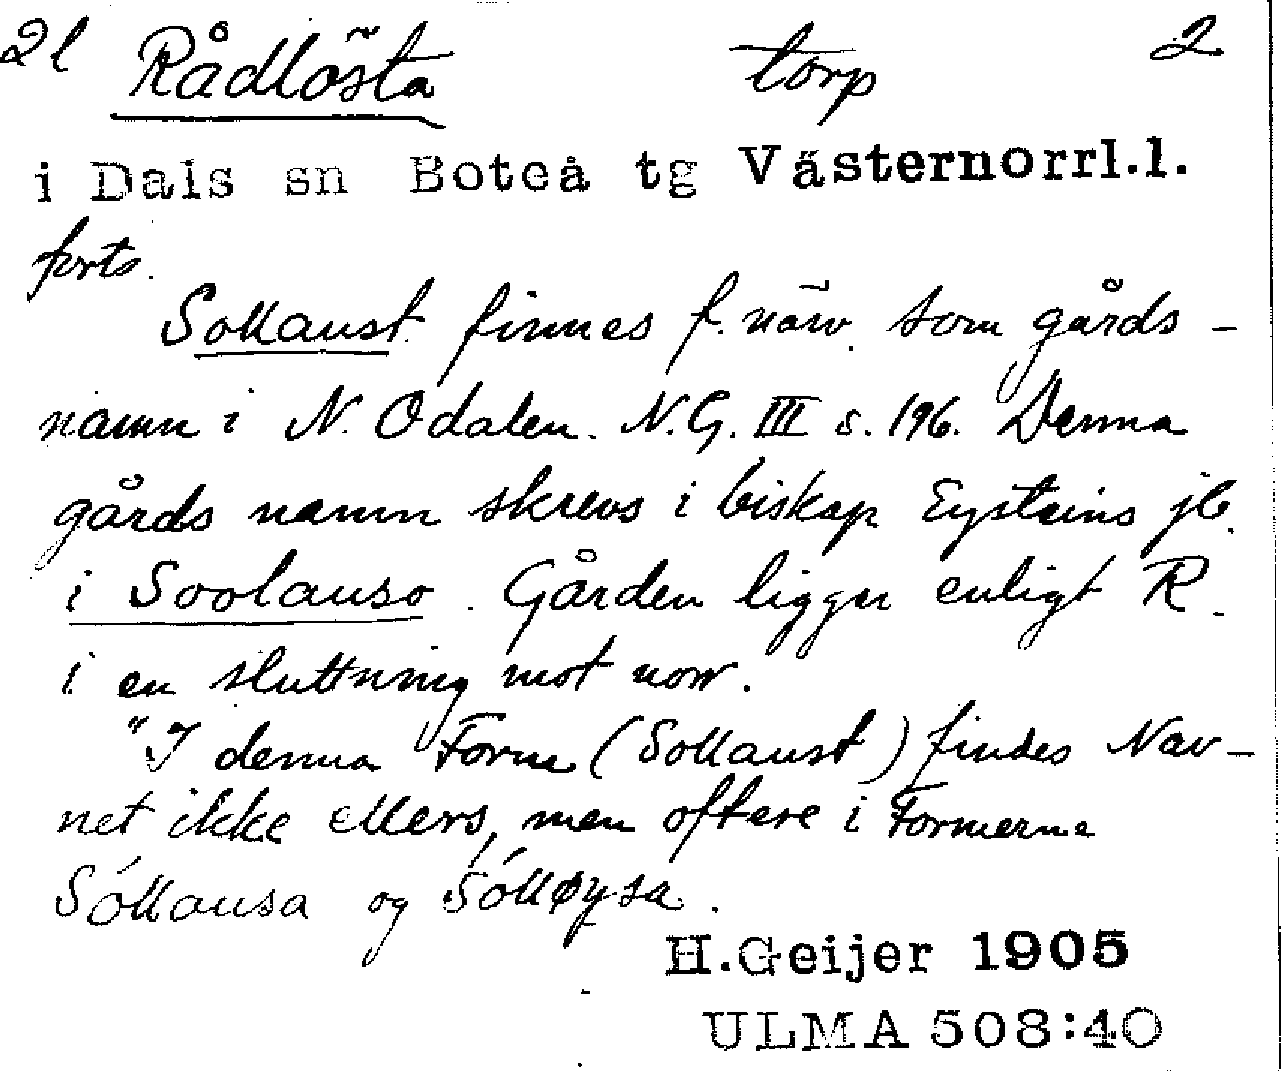 2l Rådlösta torp 2
i Dals sn Boteå tg Västernorrl.l.
forts.
Sollaust finnes f. närv. som gårds-
namn i N. Odalen. N.G. III s. 196. Denna
gårds namn skrevs i biskop Eysteins jb.
i Soolauso. Gården ligger enligt R.
i en sluttning mot norr.
"I denna Form (Sollaust) findes Nav-
net ikke ellers, men oftere i Formerne
Sóllausa og Sólløysa.
H.Geijer 1905
ULMA 508:40